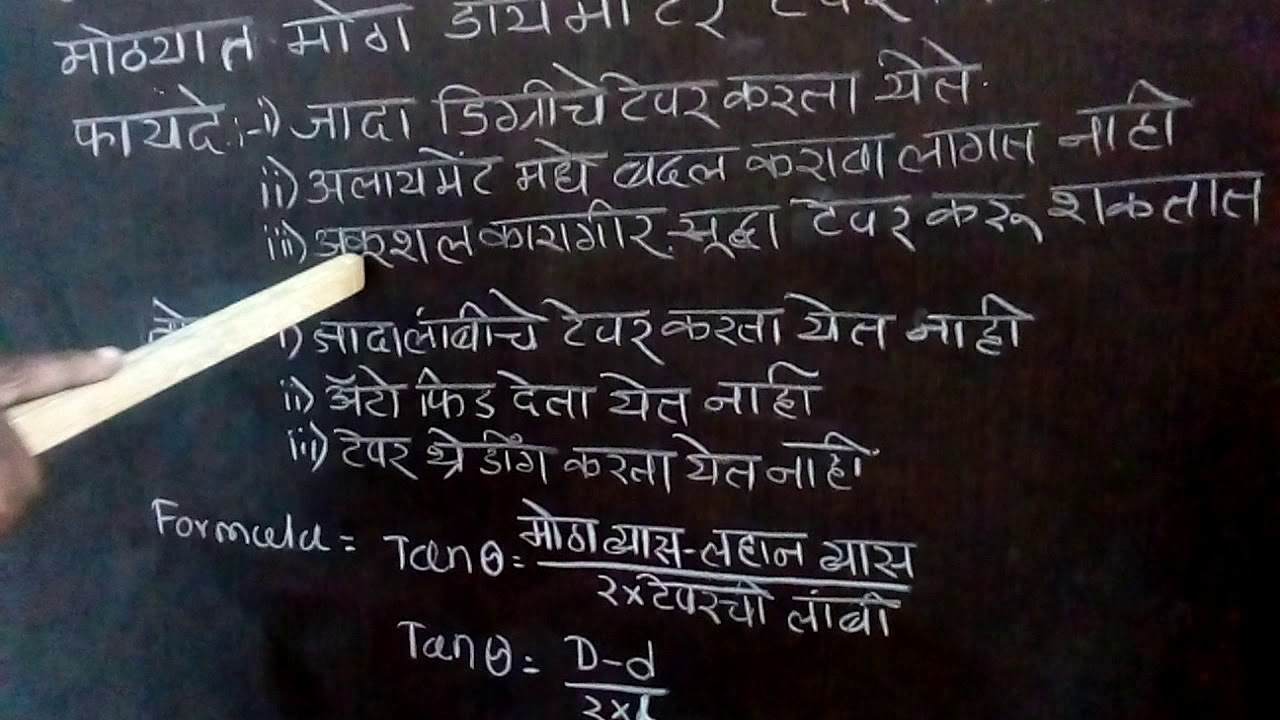 मोठ्यात मोठा डायमीटर टेपर
फायदे :- i) जादा डिग्रीचे टेपर करता येते.
ii) अलायमेंट मधे बदल करावा लागत नाही
iii) अकुशल कारागीर सूद्धा टेपर करू शकतात
i) जादा लांबीचे टेपर करता येत नाही
ii) ॲटो फिड देता येत नाही
iii) टेपर थ्रेडींग करता येत नाही
Formula = Tan θ = मोठा व्यास - लहान व्यास
२ x टेपरची लांबी
Tan θ = D-d
२x